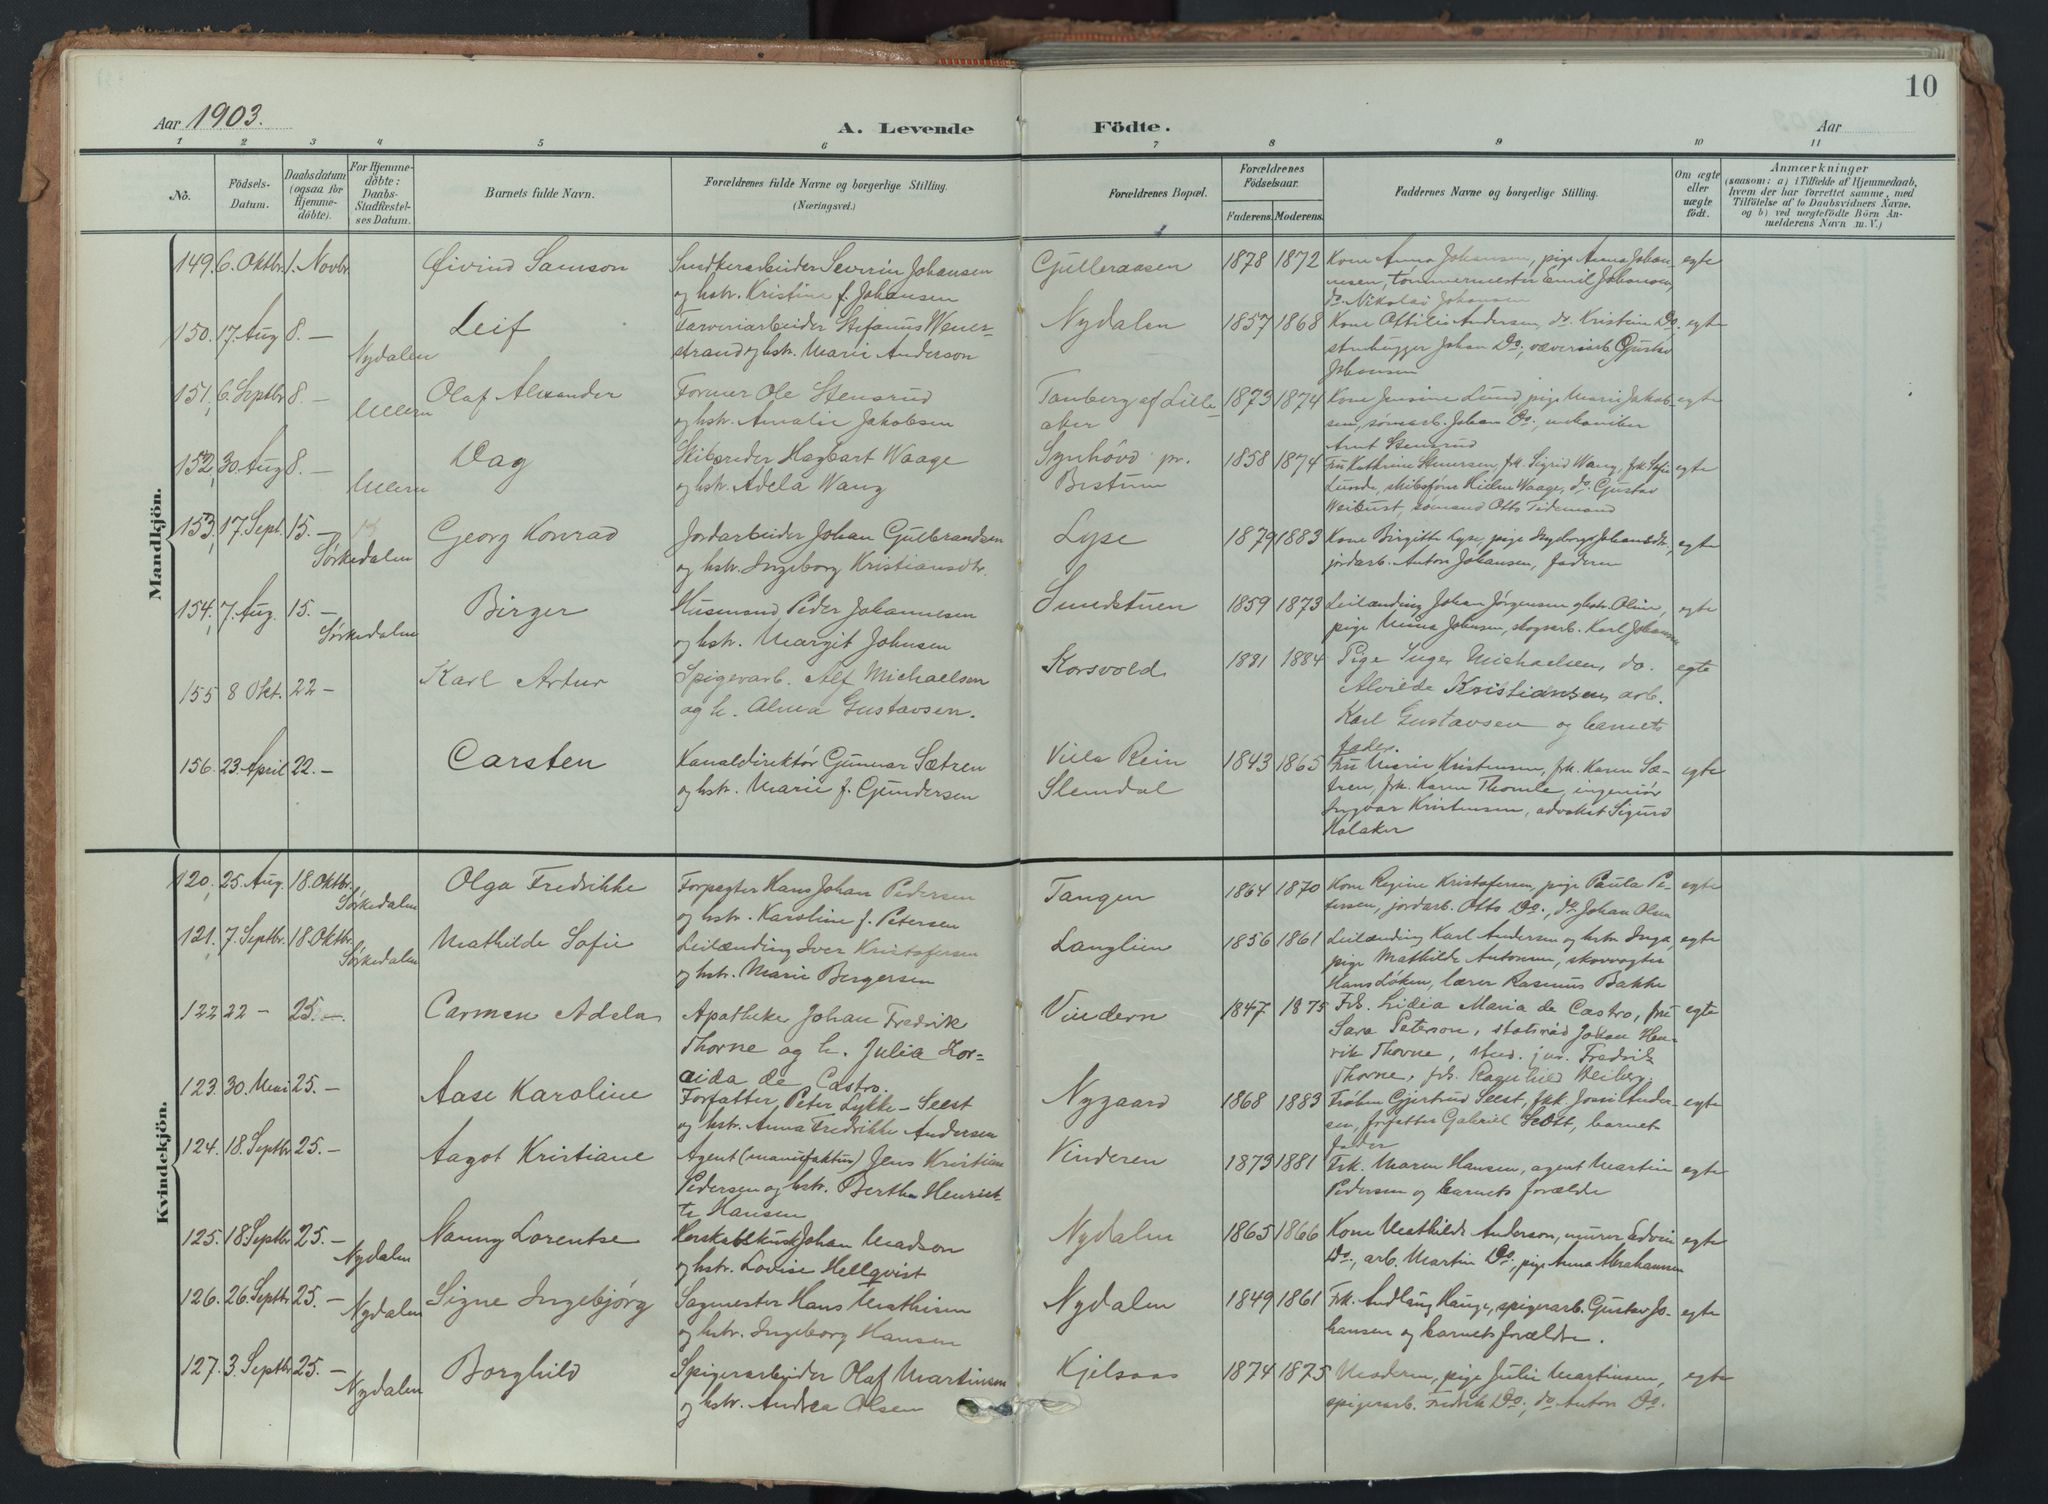 10
Aar 1903. A. Levende Födte. Aar
1 2 3 4 5 6 7 8 9 10 11
No. Födsels-Datum. Daabsdatum (ogsaa for Hjemmedöbte). For Hjemmedöbte: Daabs-Stadfæstelses Datum. Barnets fulde Navn. Forældrenes fulde Navne og borgerlige Stilling. (Næringsvei.) Forældrenes Bopæl. Forældrenes Födselsaar. Faderens. Moderens. Faddernes Navne og borgerlige Stilling. Om ægte eller uægte födt. Anmærkninger (saasom: a) i Tilfælde af Hjemmedaab, hvem der har forrettet samme, med Tilföielse af to Daabsvidners Navne, og b) ved uægtefödte Börn Anmelderens Navn m. V.)
Mandkjön.
149. 6. Oktbr. 1. Novbr. Øivind Samson Snedkerarbeider Severin Johansen Gulleraasen 1878 1872 Kone Anna Johansen, pige Anna Johan- egte
og hstr. Kristine f. Johansen nesen, tømmermester Emil Johansen,
do. Nikolai Johansen
150. 17 Aug 8. — Leif Farveriarbeider Stefanus Wener- Nydalen 1857 1868 Kone Ottilie Andersen, do. Kristine Do. egte
Nydalen strand og hstr. Marie Anderson stenhugger Johan Do., væveriarb. Gustav
Johansen
151. 6. Septbr 8. — Olaf Alexander Former Ole Stensrud Tanberg af Lille- 1873 1874 Kone Jensine Lund, pige Marie Jakob- egte
Ullern og hstr. Amalie Jakobsen aker sen, sømarb. Johan Do., mekaniker
Arnt Stensrud
152. 30. Aug 8. — Dag Skibsreder Hagbart Waage Synhövd pr. 1858 1874 Fru Kathrine Stenersen, frk. Sigrid Wang, frk. Sofie egte
Ullern og hstr. Adela Wang Bestum Lunde, skibsfører Hielm Waage, do. Gustav
Weibust, sømand Otto Tidemand
153. 17. Sept. 15. — Georg Konrad Jordarbeider Johan Gulbrandsen Lyse 1879 1883 Kone Birgitte Lyse, pige Ingeborg Johansdtr., egte
Sørkedalen og hstr. Ingeborg Kristiansdtr. jordarb. Anton Johansen, faderen
154. 7. Aug. 15. — Birger Husmand Peder Johannesen Smedstuen 1859 1873 Leilænding Johan Jørgensen og hstr. Oline, egte
Sørkedalen og hstr. Margit Johnsen pige Mina Johnsen, skogsarb. Karl Johansen
155 8 Okt. 22 — Karl Artur Spigerarb. Alf Michaelsen Korsvold 1881 1884 Pige Inger Michaelsen, do. egte
og h. Alma Gustavsen. Alvilde Kristiansen, arb.
Karl Gustavsen og barnets
fader.
156. 23. April 22. — Carsten Kanaldirektør Gunnar Sætren Villa Rein 1843 1865 Fru Marie Kristensen, frk. Karen Sæ- egte
og hstr. Marie f. Gundersen Slemdal tren, frk. Karen Thomle, ingeniør
Ingvar Kristensen, advokat Sigurd
Holaker
Kvindekjön.
120. 25. Aug. 18. Oktbr. Olga Fredrikke Forpagter Hans Johan Pedersen Tangen 1864 1870 Kone Regine Kristofersen, pige Paula Pe- egte
Sørkedalen og hstr. Karoline f. Petersen tersen, jordarb. Otto Do., do. Johan Olsen
121. 7. Septbr. 18. Oktbr. Mathilde Sofie Leilænding Iver Kristofersen Langlien 1856 1861 Leilænding Karl Andersen og hstr. Inga, egte
Sørkedalen og hstr. Marie Bergersen pige Mathilde Antonsen, skovvogter
Hans Løken, lærer Rasmus Bakke
122 22 — 25. — Carmen Adela Apotheker Johan Fredrik Vindern 1847 1875 Frk. Lidia Maria de Castro, fru egte
Thorne og h. Julia Zor- Sara Peterson, statsråd Johan Hen-
aida de Castro. rik Thorne, stud. jur. Fredrik
Thorne, frk. Ragnhild Heiberg
123. 30. Mai 25. — Aase Karoline Forfatter, Peter Lykke-Seest Nygaard 1868 1883 Frøken Gjertrud Seest, frk. Josie Ander- egte
og hstr. Anna Fredrikke Andersen sen, forfatter Gabriel Scott, barnets
fader
124. 18. Septbr 25. — Aagot Kristiane Agent (manufaktur) Jens Kristian Vinderen 1873 1881 Frk. Maren Hansen, agent Martin egte
Pedersen og hstr. Berthe Henriet- Pedersen og barnets forældre
te Hansen
125. 18. Septbr 25. — Nanny Lorentse Herskabskusk Johan Madson Nydalen 1865 1866 Kone Mathilde Anderson, murer Edvin egte
Nydalen og hstr. Lovise Hellqvist Do., arb. Martin Do., pige Anna Abrahamsen
126. 26. Septbr 25. — Signe Ingebjørg Sagmester Hans Mathisen Nydalen 1849 1861 Frk. Andlaug Hauge, spigerarb. Gustav Jo- egte
Nydalen og hstr. Ingeborg Hansen hansen og barnets forældre.
127. 3. Septbr 25. — Borghild Spigerarbeider Olaf Martinsen Kjelsaas 1874 1875 Moderen, pige Julie Martinsen, egte
Nydalen og hstr. Andrea Olsen spigerarb. Fredrik Do., do Anton Do.